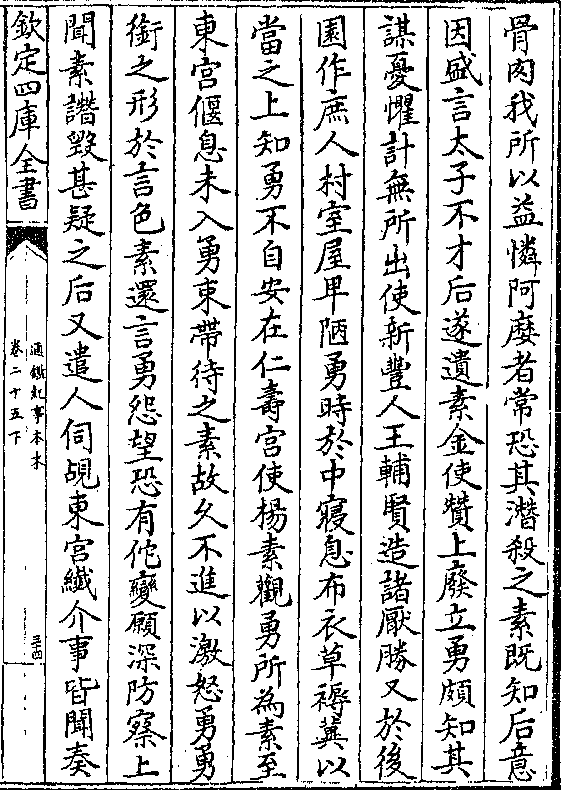 骨肉我所以益憐阿𡡉者常恐其潛殺之素既知后意
因盛言太子不才后遂遺素金使贊上廢立勇頗知其
謀憂懼計無所出使新豐人王輔賢造諸厭勝又於後
園作庶人村室屋卑陋勇時於中寢息布衣草褥冀以
當之上知勇不自安在仁壽宮使楊素觀勇所為素至
東宮偃息未入勇束帶待之素故久不進以激怒勇勇
銜之形於言色素還言勇怨望恐有佗變願深防察上
聞素譖毀甚疑之后又遣人伺覘東宮纖介事皆聞奏
欽定四庫全書
通鑑紀事本末
卷二十五下
三十四